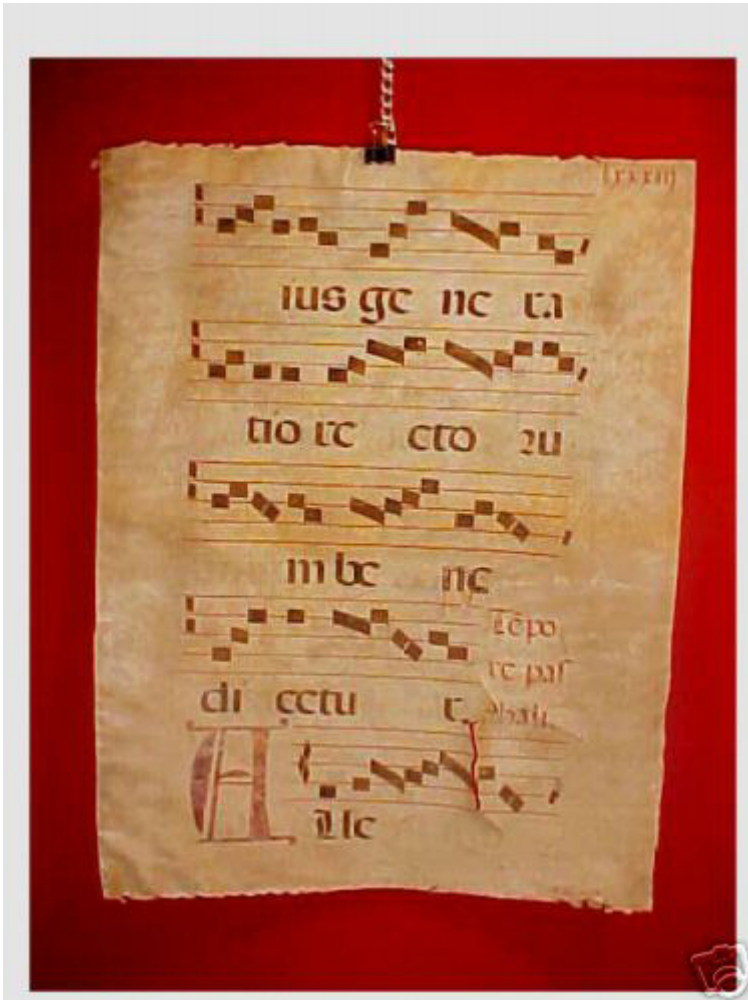 ius ge ne ra
tio re cto ru
m be ne
Tẽpo
re pas
chali.
di cetu r.
A Lle